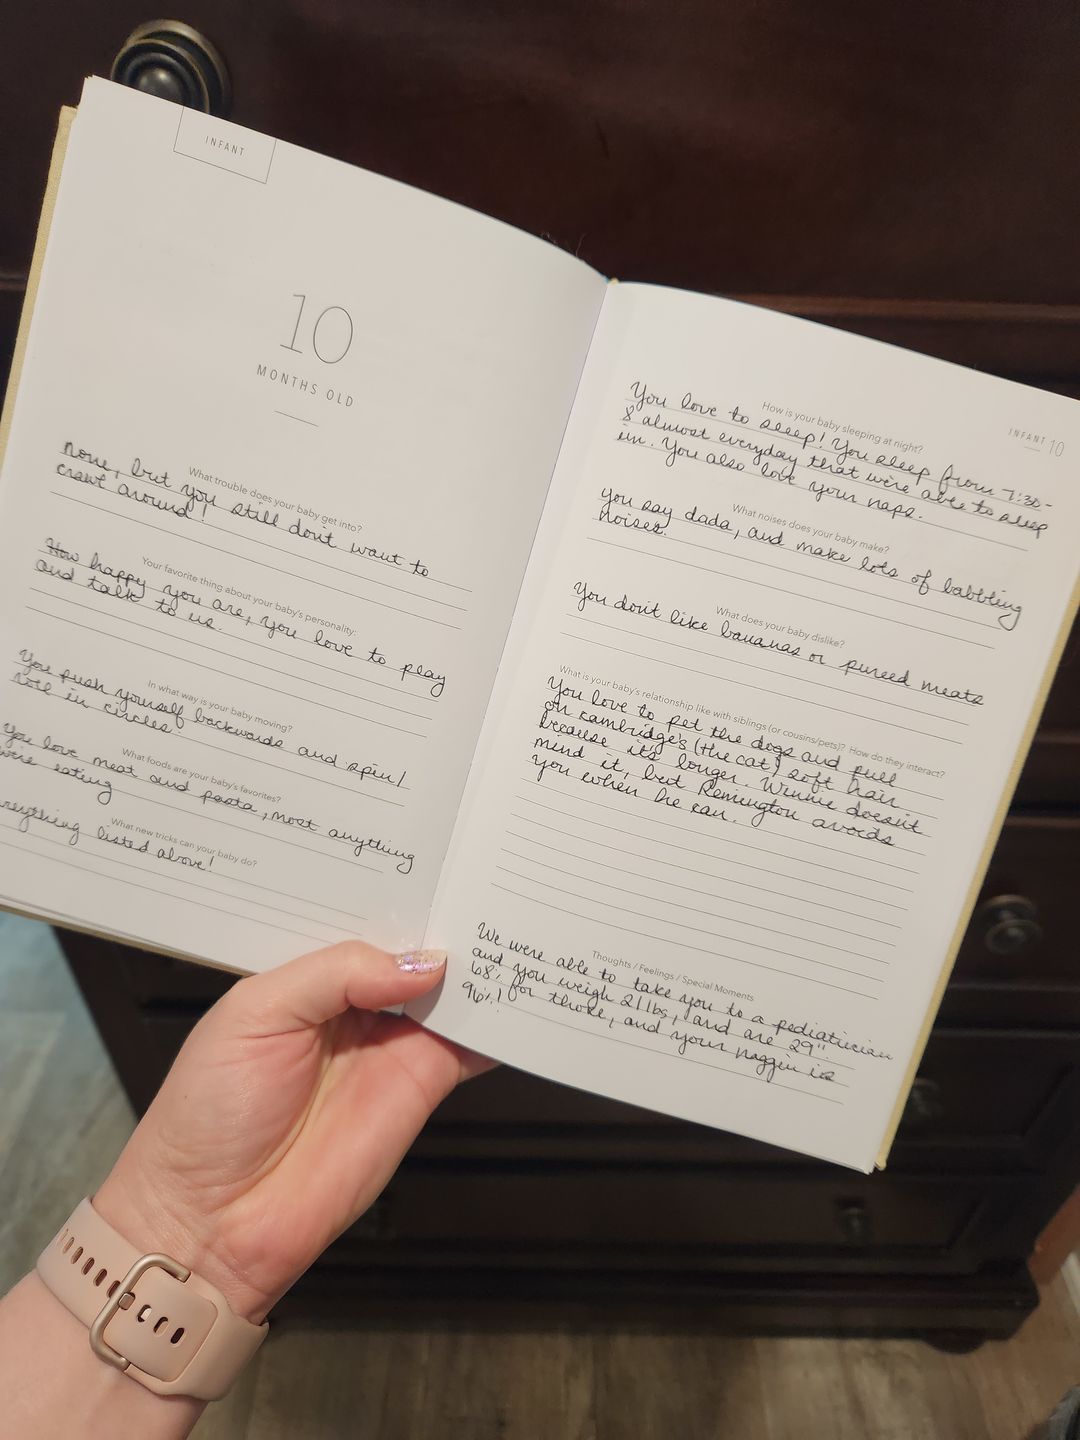 INFANT
10
MONTHS OLD
What trouble does your baby get into?
none, but you still don't want to
crawl around!
Your favorite thing about your baby's personality:
How happy you are, you love to play
and talk to us.
In what way is your baby moving?
You push yourself backwards and spin/
roll in circles.
What foods are your baby's favorites?
You love meat and pasta, most anything
we're eating
What new tricks can your baby do?
listed above!
INFANT 10
How is your baby sleeping at night?
You love to sleep! You sleep from 7:30-
8 almost everyday that we're able to sleep
in. You also love your naps.
What noises does your baby make?
you say dada, and make lots of babbling
noises.
What does your baby dislike?
You don't like bananas or pureed meats
What is your baby's relationship like with siblings (or cousins/pets)? How do they interact?
You love to pet the dogs and pull
on Kambridge's (the cat) soft hair
because it's longer. Winnie doesn't
mind it, but Remington avoids
you when he can.
Thoughts / Feelings / Special Moments
We were able to take you to a pediatrician
and you weigh 21lbs, and are 29".
68% for those, and your noggin is
96%!